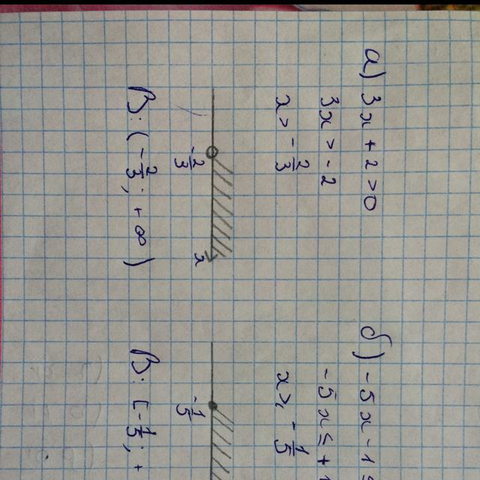 а) 3x + 2 > 0
3x > -2
x > -2/3
-2/3 x
В: (-2/3; +∞)
б) -5x - 1 ≤
-5x ≤ +1
x ≥ -1/5
-1/5
В: [-1/5; +